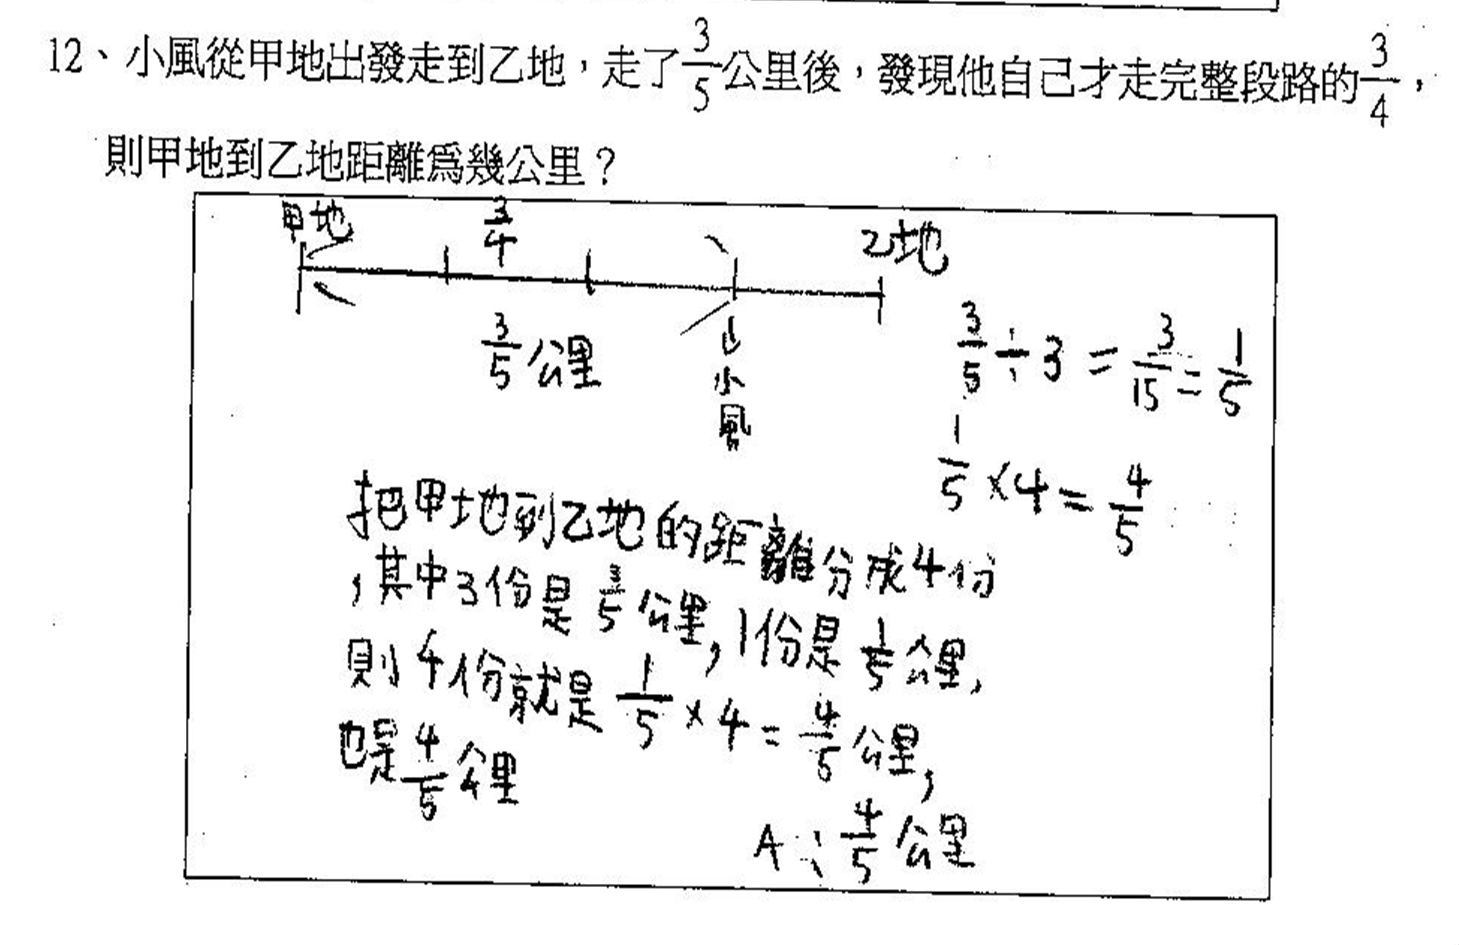 12、小風從甲地出發走到乙地，走了3/5公里後，發現他自己才走完整段路的3/4，
則甲地到乙地距離為幾公里？
甲地 3/4 乙地
3/5公里
小風
3/5÷3=3/15=1/5
1/5×4=4/5
把甲地到乙地的距離分成4份
，其中3份是3/5公里，1份是1/5公里，
則4份就是1/5×4=4/5公里，
也是4/5公里
A：4/5公里